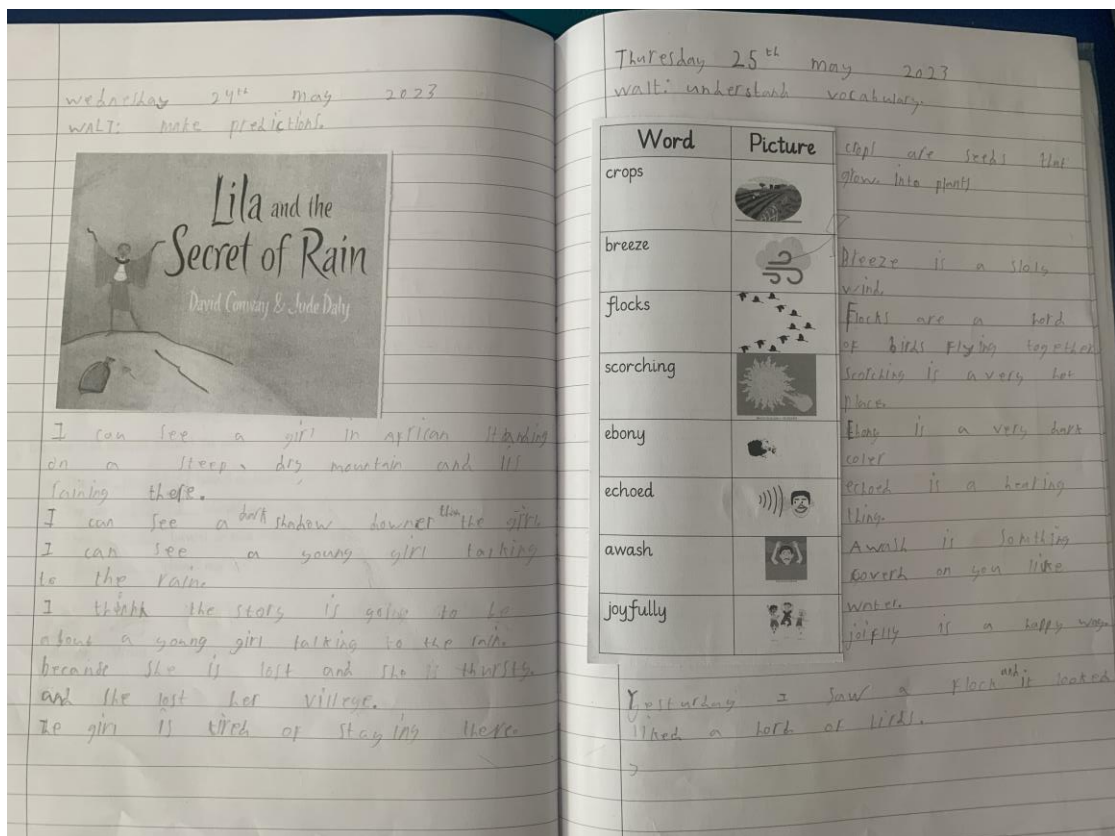 wednesday 24th may 2023
WALT: make predictions.
Lila and the
Secret of Rain
David Conway & Jude Daly
I can see a girl in african standing
on a steep, dry mountain and its
raining there.
I can see a dark shadow downer than the girl.
I can see a young girl talking
to the rain.
I thinhk the story is going to be
about a young girl talking to the rain.
because she is lost and she is thursty.
and she lost her villege.
The girl is tired of staying there.
Thuresday 25th may 2023
walt: understand vocabulary.
Word Picture
crops
crops are seeds that
glow into plants
breeze
Bleeze is a slow
wind
flocks
Flocks are a herd
of birds flying together
scorching
Scorching is a very hot
place.
ebony
Ebony is a very dark
coler
echoed
echoed is a hearing
thing.
awash
Awash is somthing
coverd on you like
water.
joyfully
joifily is a happy way.
Yesturday I saw a flock and it looked
liked a herd of birds.